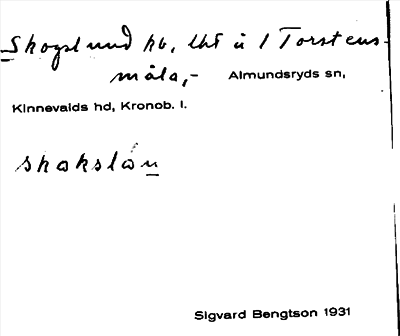 Skogslund hb, lht å 1 Torstens-
måla,- Almundsryds sn,
Kinnevalds hd, Kronob. l.
skakslån
Sigvard Bengtson 1931